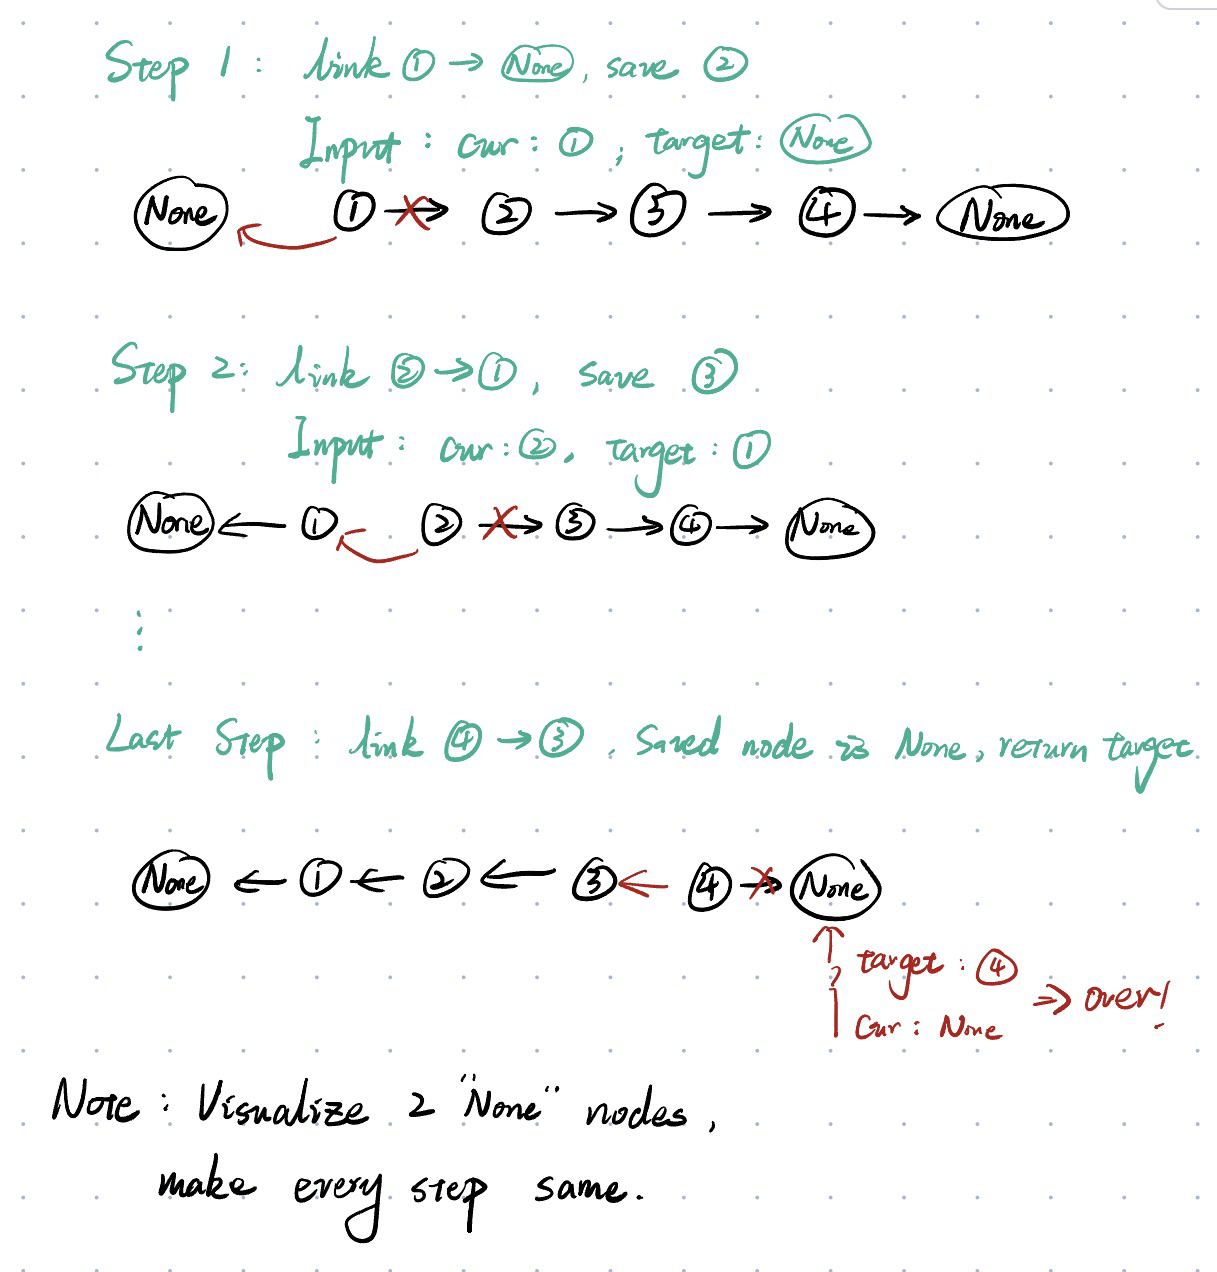 Step 1 : link ① → None, save ②
Input : cur : ① ; target: None
None ① → ② → ③ → ④ → None
Step 2: link ② → ①, save ③
Input : cur : ②, target : ①
None ← ① ② → ③ → ④ → None
⋮
Last Step : link ④ → ③. Saved node is None, return target.
None ← ① ← ② ← ③ ← ④ → None
target : ④
Cur : None ⇒ over!
Note : Visualize 2 "None" nodes,
make every step same.